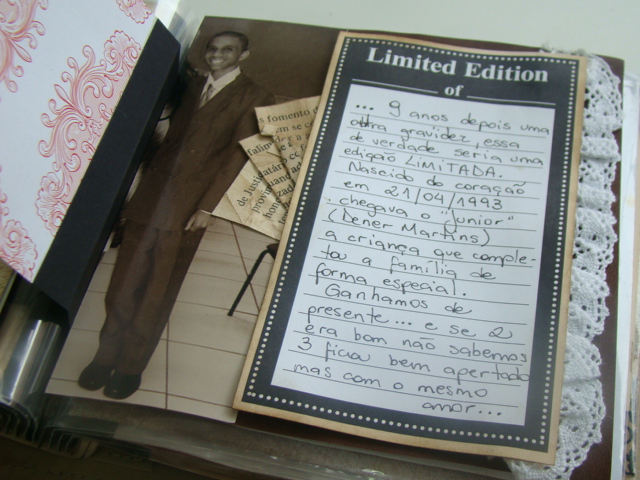 Limited Edition
of
... 9 anos depois uma
outra gravidez, essa
de verdade seria uma
edição LIMITADA.
Nascido do coração
em 21/04/1993
chegava o "Junior"
(Dener Martins)
a criança que comple-
tou a família de
forma especial.
Ganhamos de
presente... e se 2
era bom não sabemos
3 ficou bem apertado
mas com o mesmo
amor...
s fomento
em se c
de